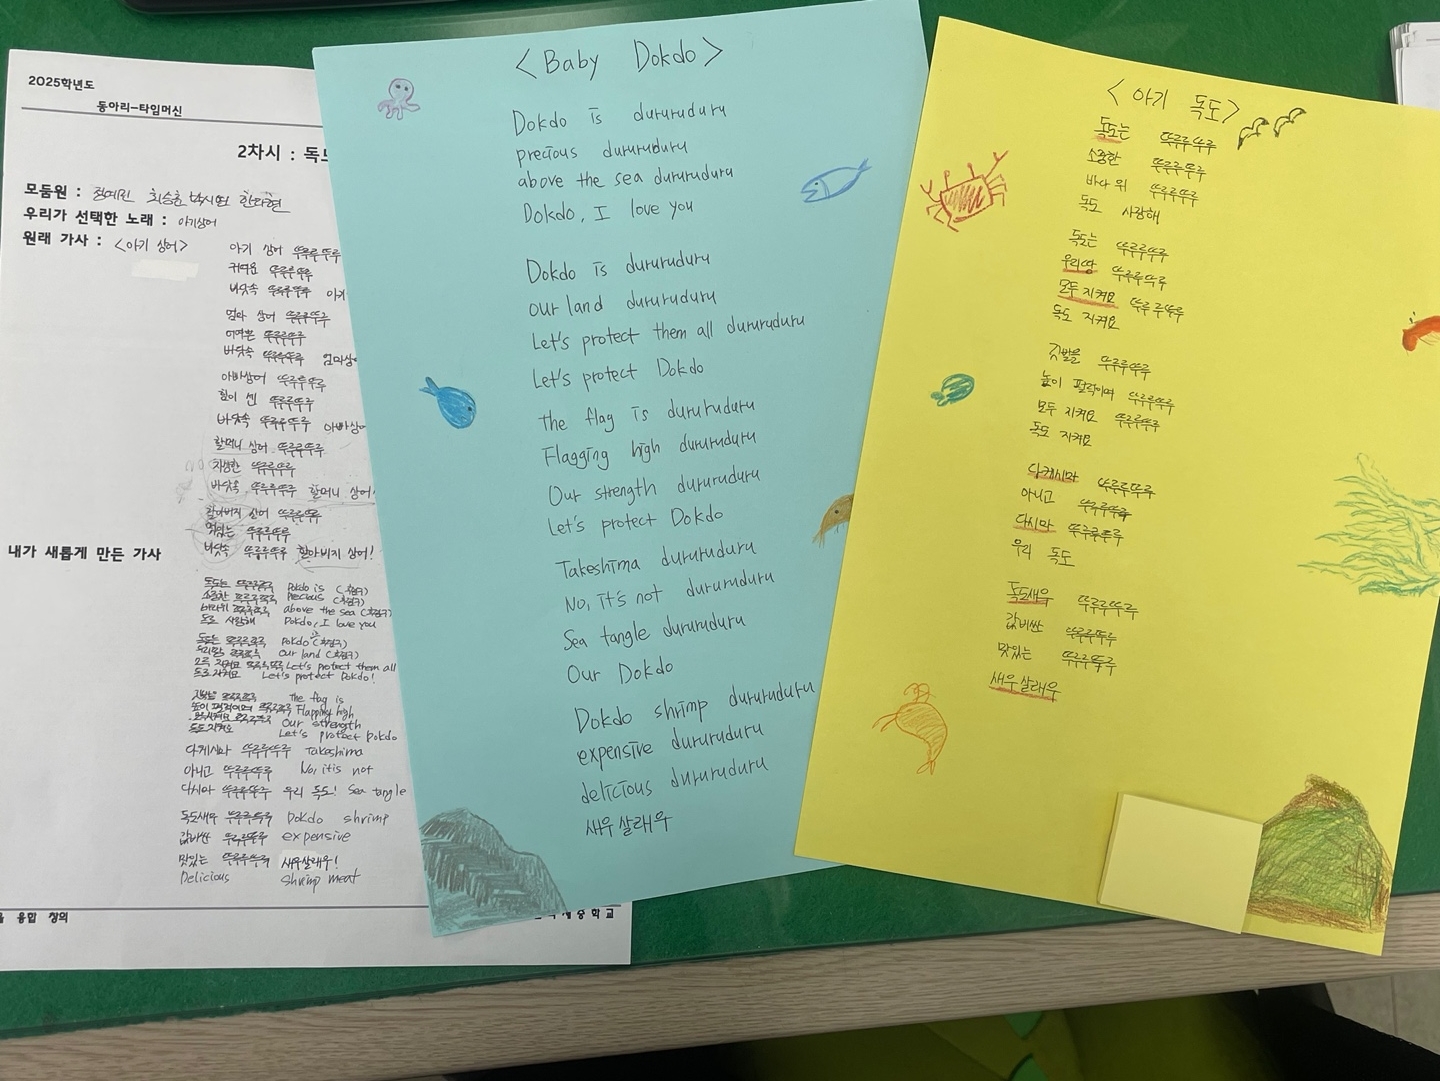 2025학년도
동아리-타임머신
2차시 : 독도
모둠원 :
우리가 선택한 노래 : 아기상어
원래 가사 : <아기 상어>
아기 상어 뚜루루뚜루
귀여운 뚜루루뚜루
바닷속 뚜루루뚜루 아기
엄마 상어 뚜루루뚜루
어여쁜 뚜루루뚜루
바닷속 뚜루루뚜루 엄마상어
아빠상어 뚜루루뚜루
힘이 센 뚜루루뚜루
바닷속 뚜루루뚜루 아빠상어
할머니 상어 뚜루루뚜루
자상한 뚜루루뚜루
바닷속 뚜루루뚜루 할머니 상어
할아버지 상어 뚜루루뚜루
멋있는 뚜루루뚜루
바닷속 뚜루루뚜루 할아버지 상어!
내가 새롭게 만든 가사
독도는 뚜루루뚜루 Dokdo is (후렴구)
소중한 뚜루루뚜루 Precious (후렴구)
바다위 뚜루루뚜루 above the sea (후렴구)
독도 사랑해 Dokdo, I love you
독도는 뚜루루뚜루 Dokdo is (후렴구)
우리땅 뚜루루뚜루 Our land (후렴구)
모두 지켜요 뚜루루뚜루 Let's protect them all
독도 지켜요 Let's protect Dokdo!
깃발을 뚜루루뚜루 The flag is
높이 펄럭이며 뚜루루뚜루 Flapping high
모두 지켜요 뚜루루뚜루 Our strength
독도 지켜요 Let's protect Dokdo
다케시마 뚜루루뚜루 Takeshima
아니고 뚜루루뚜루 No, it is not
다시마 뚜루루뚜루 우리 독도! Sea tangle
독도새우 뚜루루뚜루 Dokdo shrimp
값비싼 뚜루루뚜루 expensive
맛있는 뚜루루뚜루 새우살래우!
Delicious shrimp meat
융합 창의
중학교
<Baby Dokdo>
Dokdo is dururuduru
precious dururuduru
above the sea dururuduru
Dokdo, I love you
Dokdo is dururuduru
our land dururuduru
Let's protect them all dururuduru
Let's protect Dokdo
the flag is dururuduru
Flagging high dururuduru
Our strength dururuduru
Let's protect Dokdo
Takeshima dururuduru
No, it's not dururuduru
Sea tangle dururuduru
Our Dokdo
Dokdo shrimp dururuduru
expensive dururuduru
delicious dururuduru
새우살래우
<아기 독도>
독도는 뚜루루뚜루
소중한 뚜루루뚜루
바다 위 뚜루루뚜루
독도 사랑해
독도는 뚜루루뚜루
우리땅 뚜루루뚜루
모두 지켜요 뚜루루뚜루
독도 지켜요
깃발을 뚜루루뚜루
높이 펄럭이며 뚜루루뚜루
모두 지켜요 뚜루루뚜루
독도 지켜요
다케시마 뚜루루뚜루
아니고 뚜루루뚜루
다시마 뚜루루뚜루
우리 독도
독도새우 뚜루루뚜루
값비싼 뚜루루뚜루
맛있는 뚜루루뚜루
새우살래우